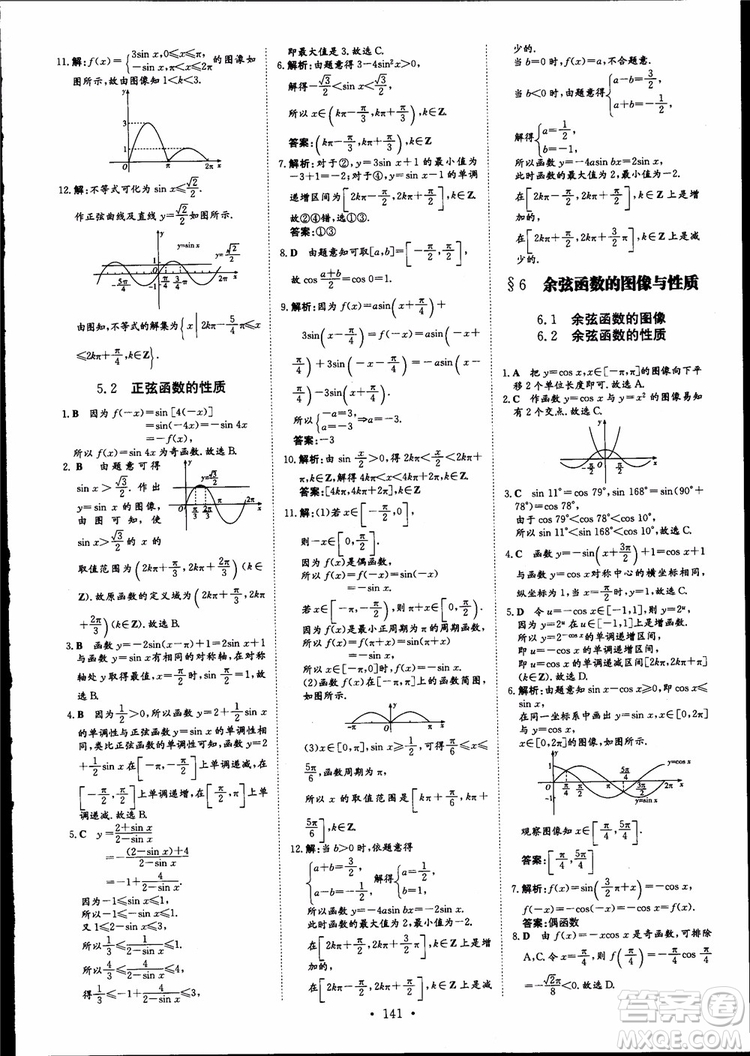 11. 解: f(x)={3sin x,0≤x≤π, -sin x,π≤x≤2π 的图像如
图所示,故由图像知 1<k<3.
y
3
1
O π 2π x
12. 解:不等式可化为 sin x≤√2/2.
作正弦曲线及直线 y=√2/2 如图所示.
y
y=sin x
y=√2/2
1
-5π/4 π/4 π/2 3π/4 x
-1
由图知,不等式的解集为{x|2kπ-5/4 π≤x
≤2kπ+π/4,k∈Z}.
5.2 正弦函数的性质
1. B 因为 f(-x)=sin[4(-x)]
=sin(-4x)=-sin 4x
=-f(x).
所以 f(x)=sin 4x 为奇函数.故选 B.
2. B 由题意可得
sin x>√3/2. 作出
y=sin x 的图像,
由图可知,使
sin x>√3/2 的 x 的
取值范围为(2kπ+π/3,2kπ+2π/3)(k∈
Z).故原函数的定义域为(2kπ+π/3,2kπ
+2π/3)(k∈Z).故选 B.
3. B 因为函数 y=-2sin(x-π)=2sin x 与函
数 y=sin x 有相同的对称轴,在对称
轴处 y 取得最值,由题意知,x=-π/2.
4. B 因为1/2>0,所以函数 y=2+1/2sin x
的单调性与正弦函数的单调性相
同,类比正弦函数的单调性可知,函
数在[-π/2,π/2]上单调递增.
在[π/2,3π/2]上单调递减.
5. C y=(2+sin x)/(2-sin x)
=(-(2-sin x)+4)/(2-sin x)
=-1+4/(2-sin x).
因为-1≤sin x≤1.
所以-1≤-sin x≤1.
又 1≤2-sin x≤3.
所以4/3≤4/(2-sin x)≤4.
1/3≤-1+4/(2-sin x)≤3,
即最大值是 3.故选 C.
6. 解析:由题意得 3-4sin²x>0,
解得-√3/2<sin x<√3/2.
所以 x∈(kπ-π/3,kπ+π/3),k∈Z.
答案:(kπ-π/3,kπ+π/3),k∈Z
7. 解析:对于②,y=3sin x+1 的最小值为
-3+1=-2;对于④,y=sin x 的单调
递增区间为[2kπ-π/2,2kπ+π/2],k∈Z.
故②④错,选①③.
答案:①③
8. D 由题意知可取[a,b]=[-π/2,π/2],
故 cos (a+b)/2=cos 0=1.
9. 解析:因为 f(x)=asin(x+π/4)+
3sin(x-π/4)=asin(x-π/4+π/2)
+3sin(x-π/4)=acos(x-π/4)+3sin(x
-π/4)是偶函数,
答案:-3
10. 解析:由 sin πx/4≥0,得 2kπ≤πx/4≤2kπ
+π,k∈Z,所以 4k≤x≤4k+4,k∈Z.
11. 解:(1)若 x∈[-π/2,0],
则-x∈[0,π/2].
因为 f(x)是偶函数,
所以 f(x)=f(-x)=sin(-x)=-sin x.
若 x∈[-π,-π/2),则 π+x∈[0,π/2).
因为 f(x)是最小正周期为 π 的周期函数,
所以 f(x)=f(π+x)=sin(π+x)
=-sin x.
(2)函数 f(x)在[-π,π]上的函数简图,
如图所示:
(3)x∈[0,π],sin x≥1/2,可得 π/6≤x≤5π/6,
函数周期为 π,
所以 x 的取值范围是[kπ+π/6,kπ+
5π/6],k∈Z.
12. 解:当 b>0 时,依题意得
{a+b=3/2, a-b=-1/2} 解得{a=1/2, b=1.
所以函数 y=-4asin bx=-2sin x.
此时函数的最大值为 2.
在[2kπ+π/2,2kπ+3π/2],k∈Z 上是增
加的,
在[2kπ-π/2,2kπ+π/2],k∈Z 上是减
少的.
当 b=0 时,f(x)=a,不合题意.
解得{a=1/2, b=-1.
在[2kπ-π/2,2kπ+π/2],k∈Z 上是增
加的,
在[2kπ+π/2,2kπ+3π/2],k∈Z 上是减
少的.
§6 余弦函数的图像与性质
6.1 余弦函数的图像
6.2 余弦函数的性质
1. A 把 y=cos x,x∈[-π,π]的图像向下平
移 2 个单位长度即可.故选 A.
2. C 作函数 y=cos x 与 y=x² 的图像易知
有 2 个交点.故选 C.
3. C sin 11°=cos 79°,sin 168°=sin(90°+
78°)=cos 78°.
由于 cos 79°<cos 78°<cos 10°.
所以 sin 11°<sin 168°<cos 10°.故选 C.
4. C 函数 y=-sin(x+3π/2)=cos x,而函
数 y=cos x 对称中心的横坐标相当
于 cos x=0 时 x 的值.故选 C.
5. D 令 u=cos x∈[-1,1],则 y=2ᵘ,
因为 y=2ᵘ 在 u∈[-1,1]上是增函数,
即 u=-cos x 的单调递增区间,
即 v=cos x 的单调递减区间[2kπ,
2kπ+π](k∈Z).
6. 解析:由题意知 sin x-cos x≥0,
在同一坐标系中画出 y=sin x,x∈
[0,2π]与 y=cos x,x∈[0,2π]的图
像,如图所示.
y=cos x
y=sin x
观察图像知 x∈[π/4,5π/4].
答案:[π/4,5π/4]
7. 解析:f(x)=sin(x+3π/2)=-cos x,
f(-x)=-cos(-x)=-cos x=f(x).
答案:偶函数
8. D 由 f(x)=-xcos x 是奇函数,可排除
A,C.令 x=π/4,则 f(π/4)=-π/4cos π/4
=-√2π/8<0.故选 D.
· 141 ·
答案圈
MXQE.COM